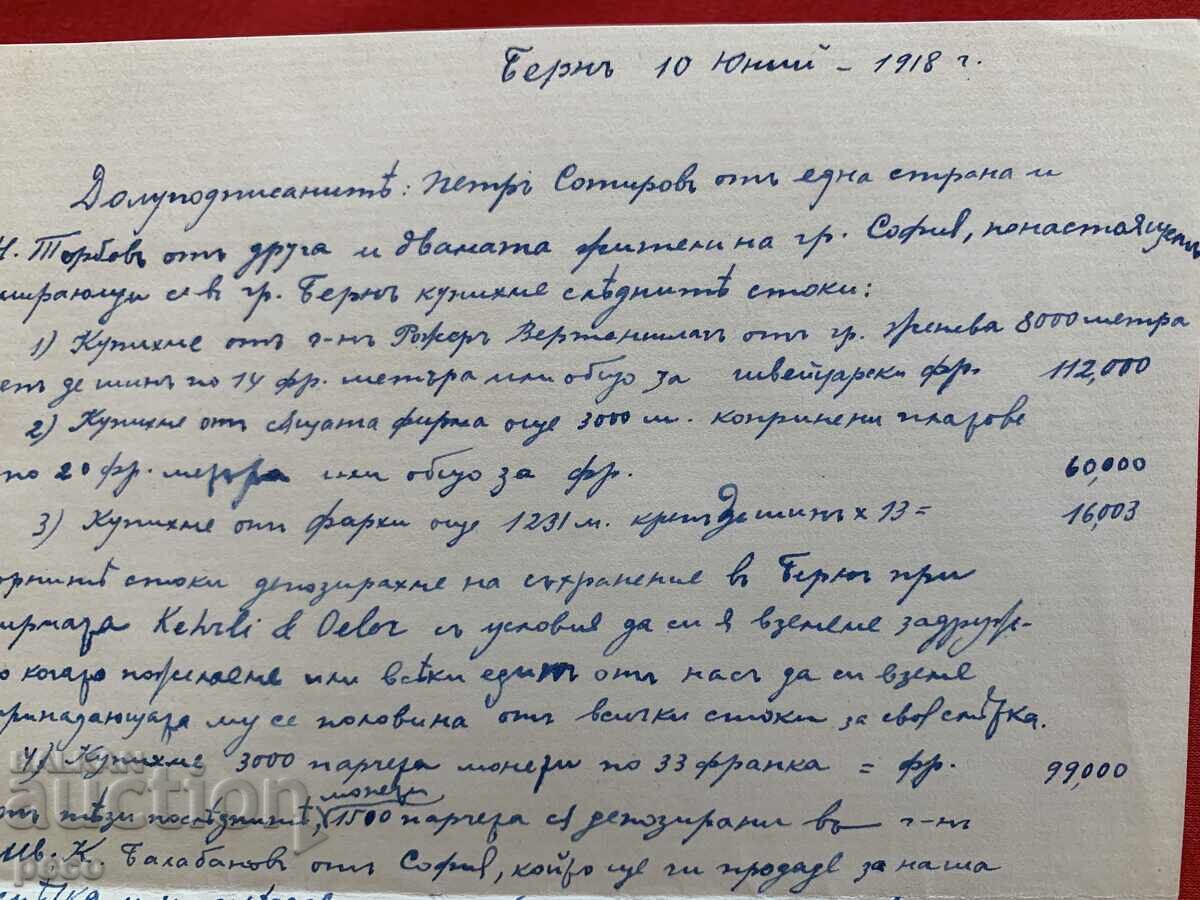 Бернъ 10 Юний - 1918 г.
Долуподписанитѣ: Петръ Сотировъ отъ една страна и
Н. Торбовъ отъ друга и двамата жители на гр. София, понастоящемъ
мирающи се въ гр. Бернъ купихме слѣднитѣ стоки:
1) Купихме отъ г-нъ Рожеръ отъ гр. Женева 8000 метра
репъ де шинъ по 14 фр. метъра или общо за швейцарски фр. 112,000
2) Купихме отъ сѫщата фирма още 3000 м. копринени платове
по 20 фр. метра или общо за фр. 60,000
3) Купихме отъ фархи още 1231 м. крепъ Де шинъ х 13 = 16,003
орнитѣ стоки депозирахме на съхранение въ Бернъ при
ирмата Kehrli & Oeler съ условия да си я вземеме задруж-
о когато пожелаеме или всѣки единъ отъ насъ да си вземе
принадающата му се половина отъ всички стоки за своя смѣтка.
4) Купихме 3000 парчета монети по 33 франка = фр. 99,000
отъ тѣзи послѣднитѣ, монети 1500 парчета сѫ депозирани въ г-нъ
Ив. К. Балабановъ отъ София, който ще ги продаде за наша
BALKAN
auction
peco